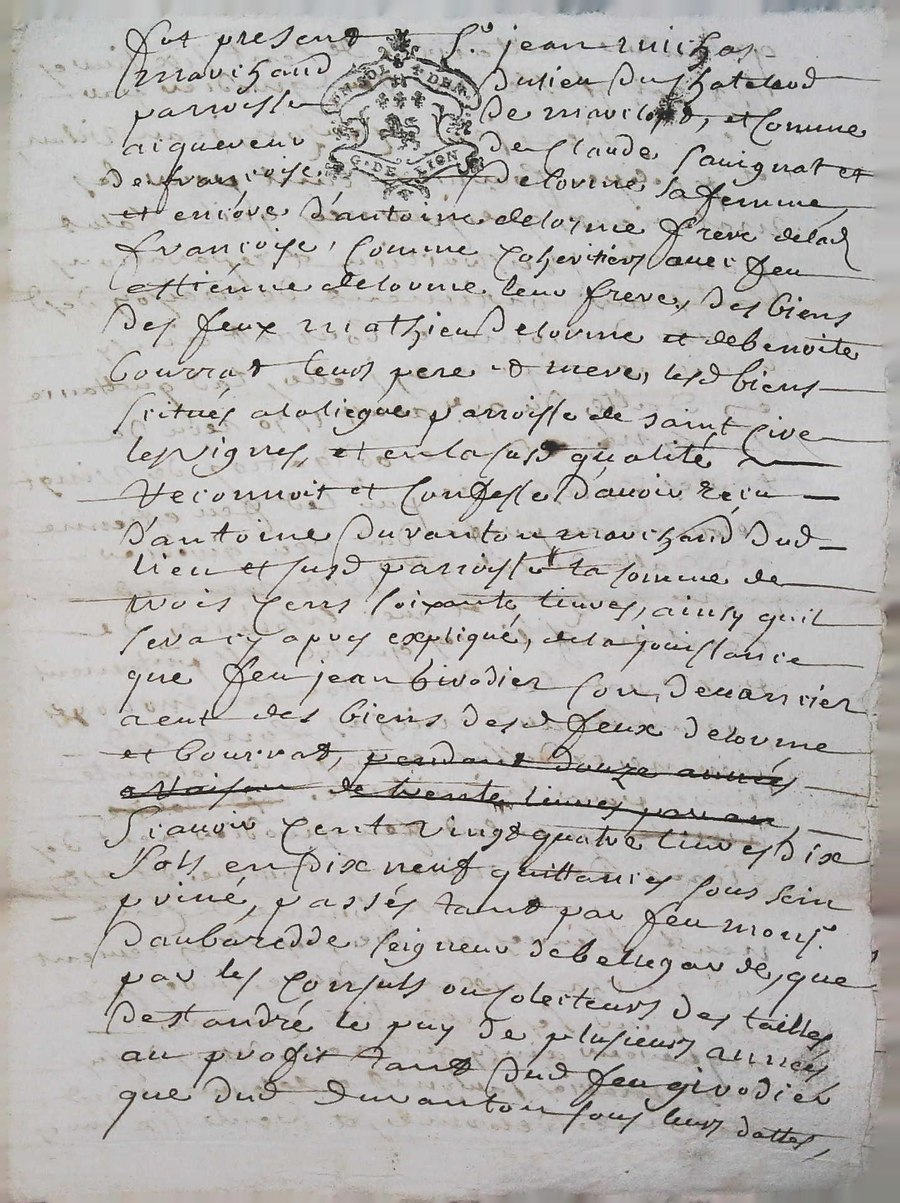 fut present Sr jean michas
marchand du lieu du Chatelard
parroisse de marclopt, et Comme
acquereur de Claude Sauignat et
de françoise delorme sa femme
et encore d'antoine delorme frere de lad
françoise, Comme Coheritiers auec feu
estienne delorme leur frere, des biens
des feux mathieu Delorme et de benoite
bourrat leurs pere et mere, lesd biens
scitués a la liegue parroisse de saint Cire
les Vignes, et en la susd qualité
Reconnoit et Confesse d'auoir reçu
d'antoine Duranton marchand dud
lieu et susd parroisse la somme de
trois Cens soixante liures, ainsy quil
sera cy apres expliqué, de la jouissance
que feu jean Giuodier son deuancier
a eut des biens desd feux delorme
et bourrat, pendant douze années
a Raison de trente liures par an
Scauoir Cent vingt quatre liures Dix
sols en Dix neuf quittances sous sein
priué, passés tant par feu monsr
daubaredde seigneur de bellegarde, que
par les Consuls ou Colecteurs des tailles
de st andré le puy de plusieurs années
au profit tant dud feu giuodier
que dud duranton sous leurs dattes,
G. DE LION